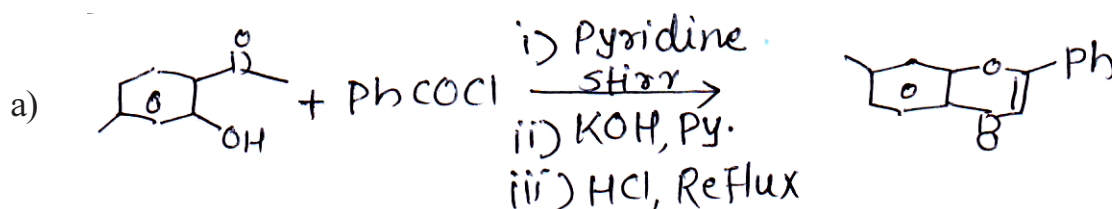 a)
O
OH
+ PhCOCl
i) Pyridine
stirr
ii) KOH, Py.
iii) HCl, Reflux
O
Ph
O